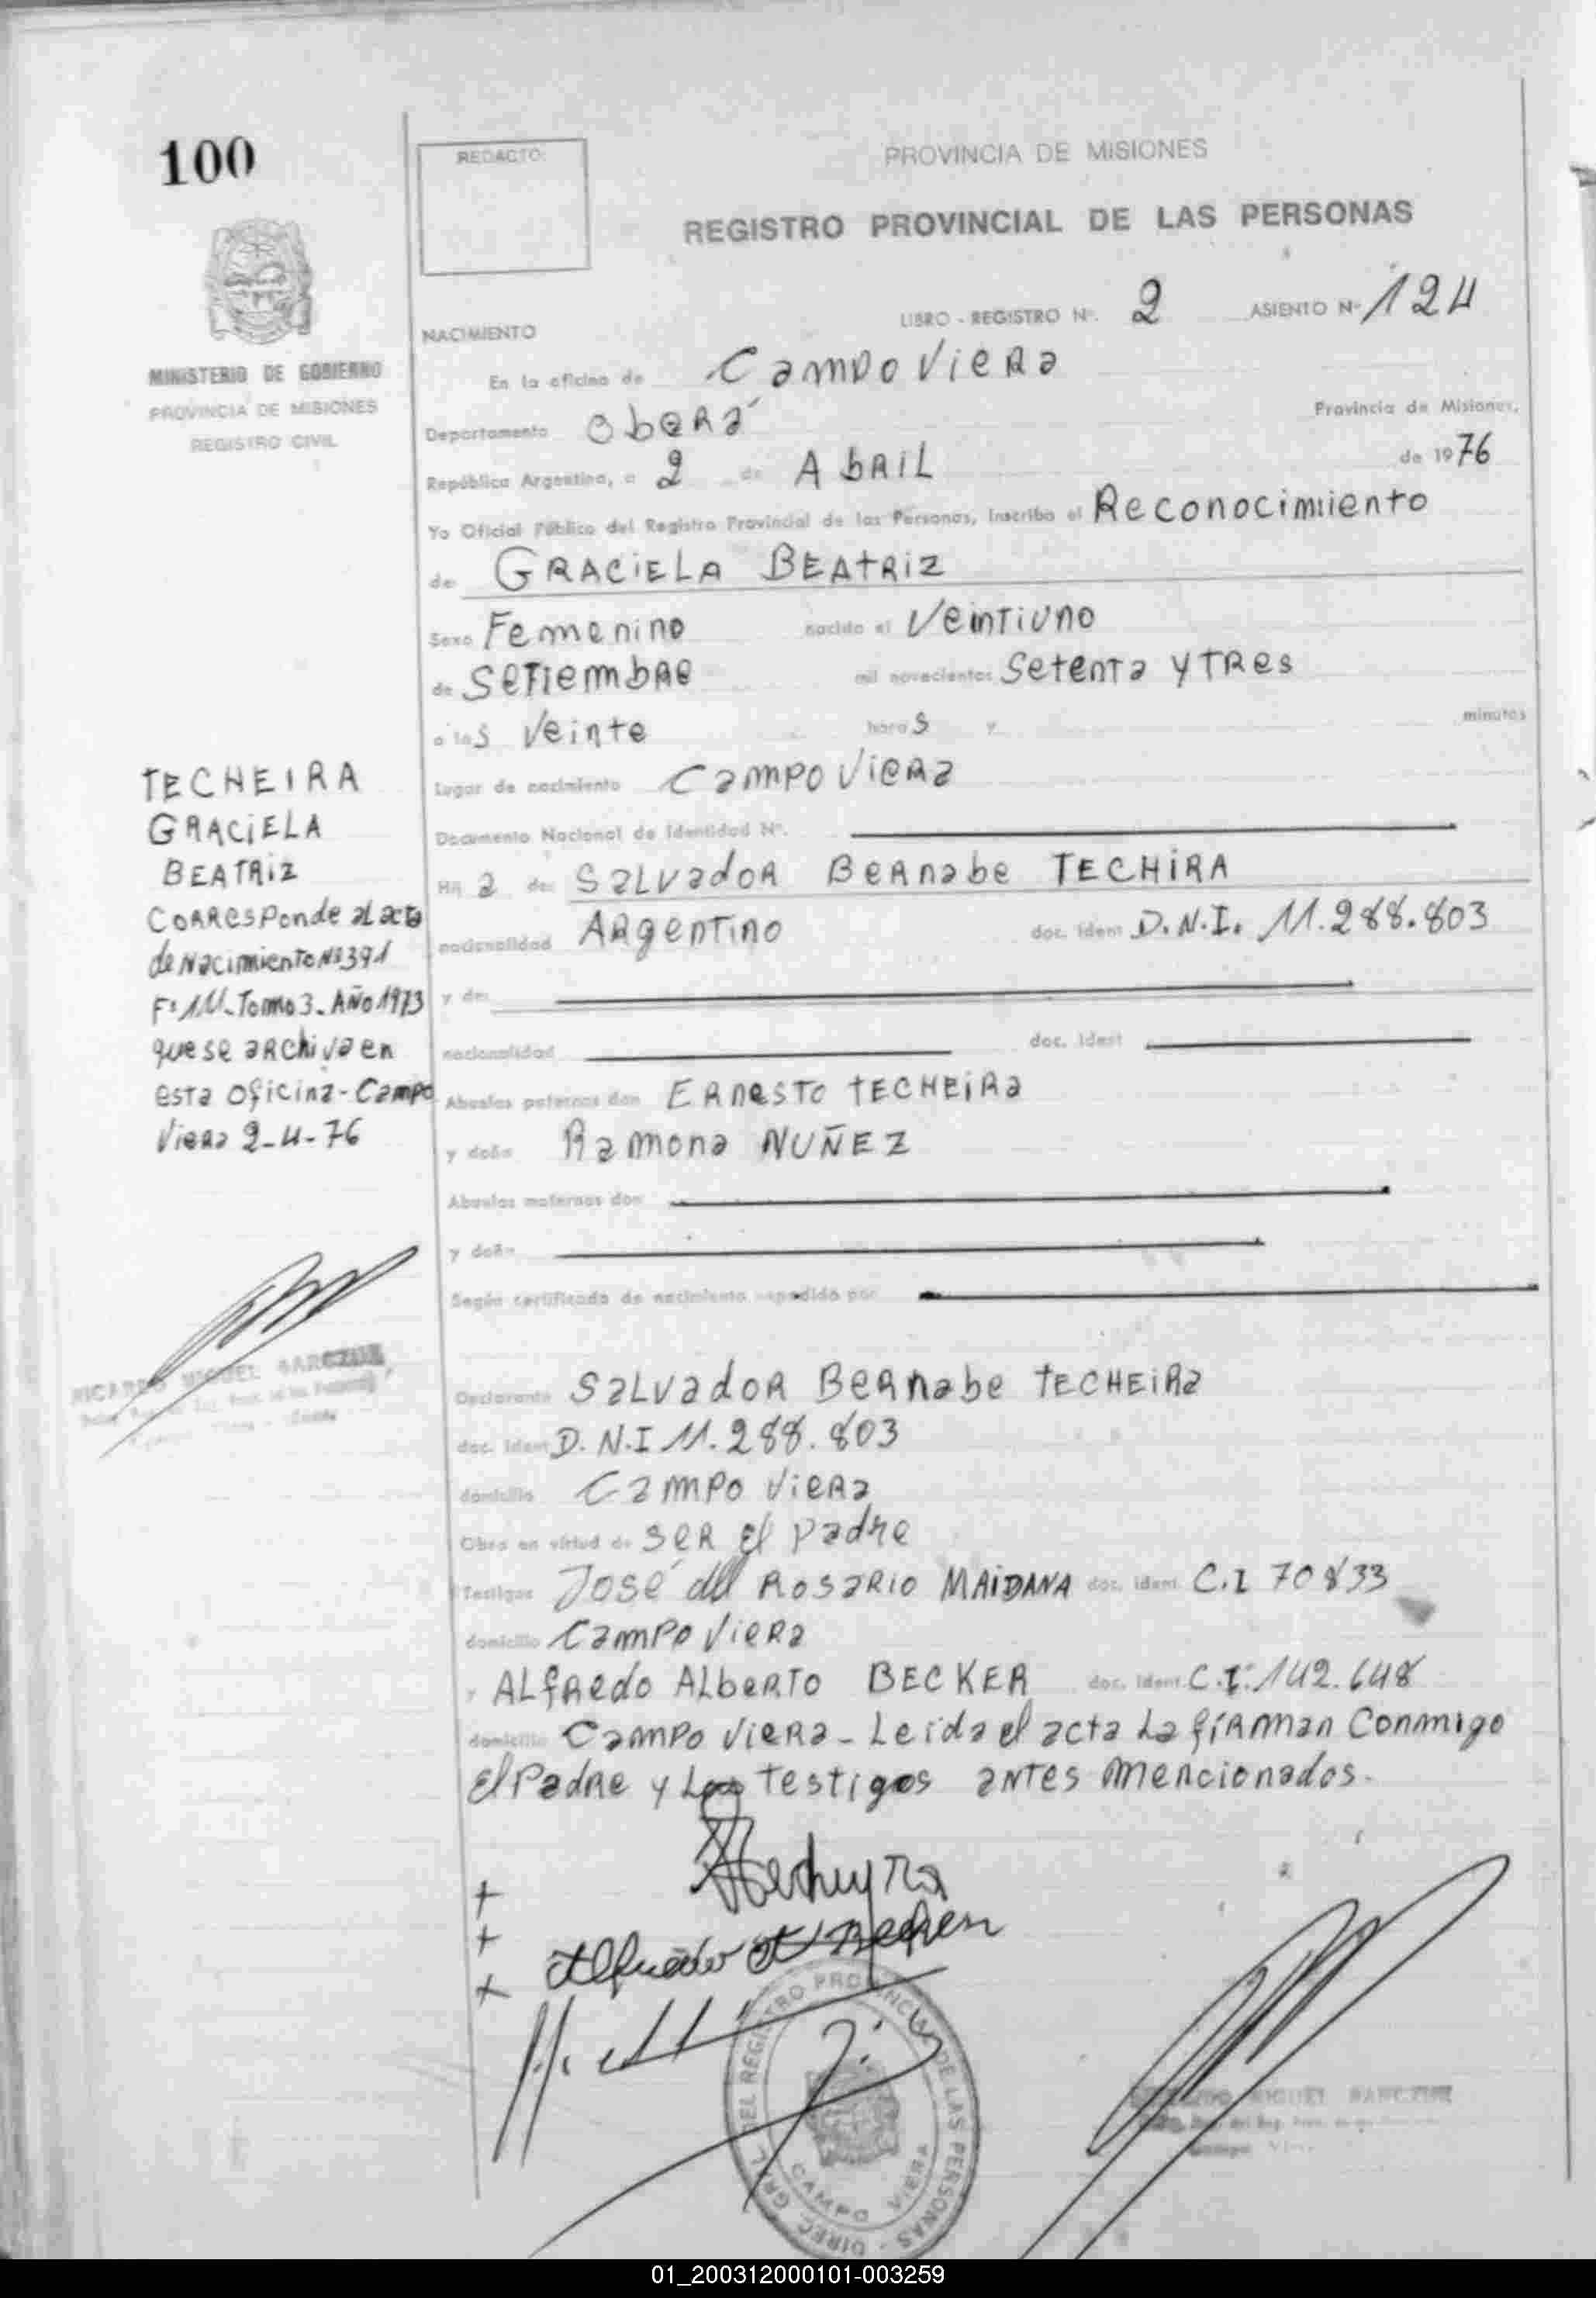 100
REDACTO:
PROVINCIA DE MISIONES
REGISTRO PROVINCIAL DE LAS PERSONAS
MINISTERIO DE GOBIERNO
PROVINCIA DE MISIONES
REGISTRO CIVIL
LIBRO - REGISTRO Nº. 2 ASIENTO Nº 124
NACIMIENTO
En la oficina de Campo Viera
Departamento Oberá Provincia de Misiones,
República Argentina, a 2 de Abril de 1976
Yo Oficial Público del Registro Provincial de las Personas, inscribo el Reconocimiento
de GRACIELA BEATRIZ
Sexo Femenino nacido el Veintiuno
de Setiembre mil novecientos Setenta y Tres
a las Veinte horas y minutos
Lugar de nacimiento Campo Viera
Documento Nacional de Identidad Nº.
Hija de: Salvador Bernabe TECHIRA
nacionalidad Argentino doc. ident D.N.I. 11.288.803
y de:
nacionalidad doc. ident
Abuelos paternos don Ernesto TECHEIRA
y doña Ramona NUÑEZ
Abuelos maternos don
y doña
Según certificado de nacimiento expedido por
TECHEIRA
GRACIELA
BEATRIZ
Corresponde al acta
de Nacimiento Nº 391
Fº 111_Tomo 3_Año 1973
que se archiva en
esta oficina-Campo
Viera 2-4-76
RICARDO MIGUEL SARCZUK
Declarante Salvador Bernabe TECHEIRA
doc. ident D.N.I 11.288.803
domicilio Campo Viera
Obra en virtud de ser el padre
Testigos José del Rosario MAIDANA doc. ident. C.I 70833
domicilio Campo Viera
y Alfredo Alberto BECKER doc. ident C.I. 142.648
domicilio Campo Viera_Leida el acta la firman Conmigo
el Padre y los testigos antes mencionados.
Alfredo A Becker
DIREC. GRAL. DEL REGISTRO PROVINCIAL DE LAS PERSONAS
CAMPO VIERA
MIGUEL SARCZUK
01_200312000101-003259